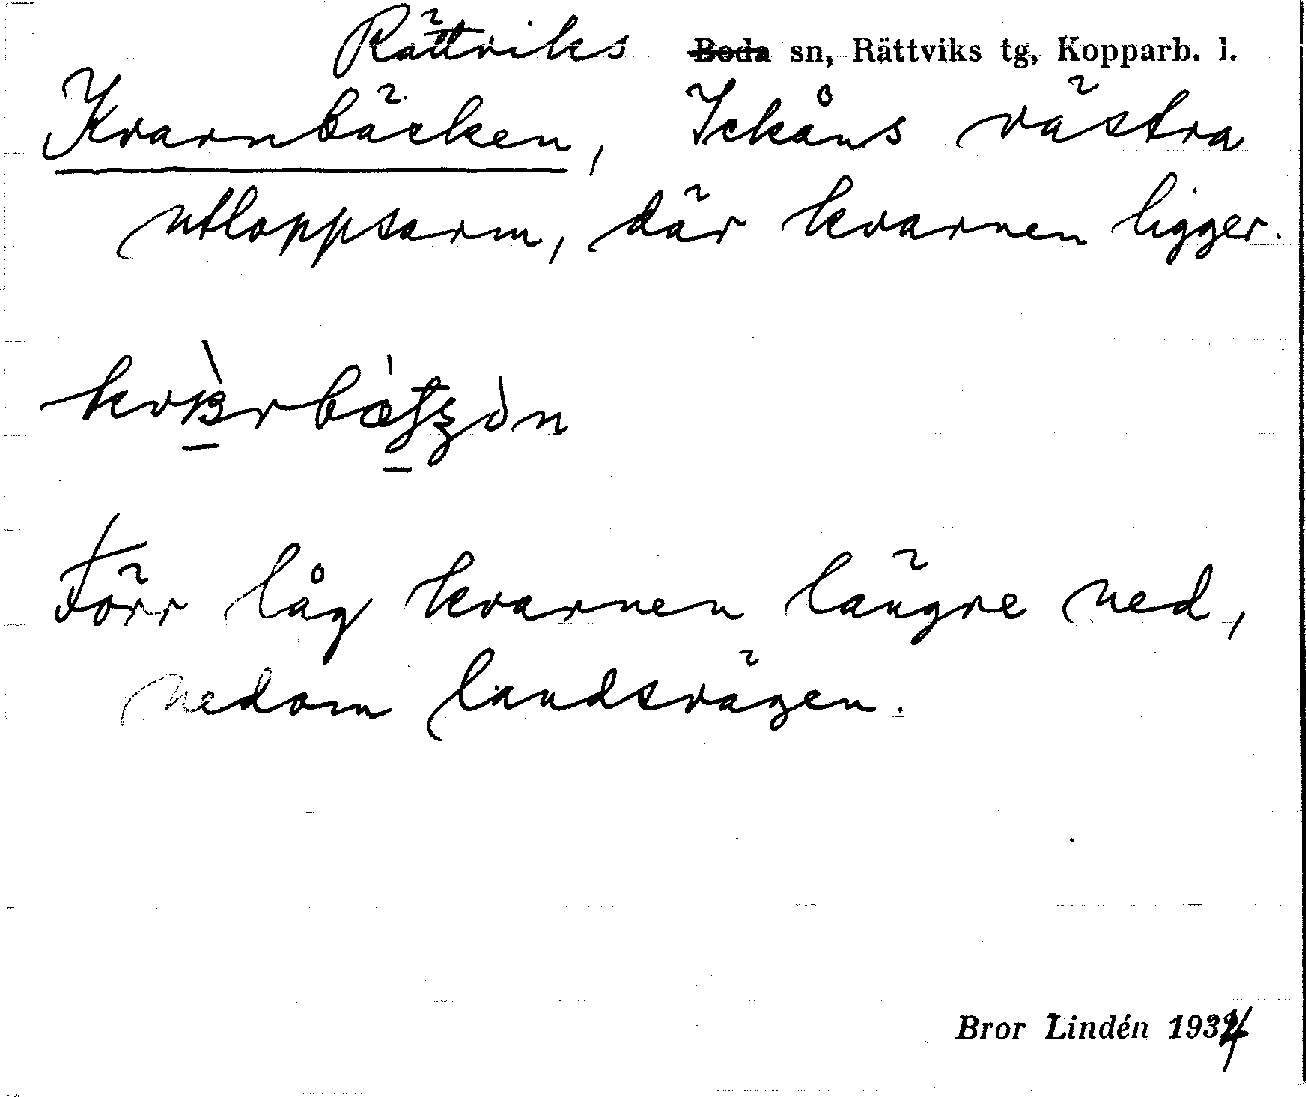 Rättviks Boda sn, Rättviks tg, Kopparb. l.
Kvarnbäcken, Ickåns västra
utloppsarm, där kvarnen ligger.
Förr låg kvarnen längre ned,
nedom landsvägen.
Bror Lindén 1934